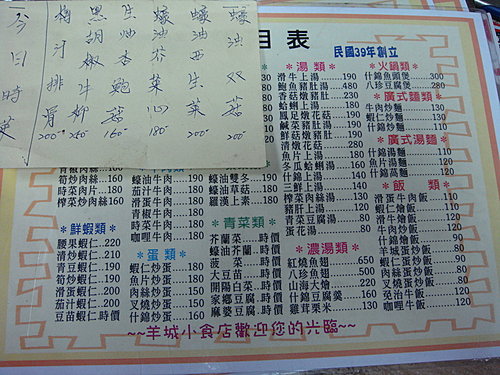 今日時菜
梅汁排骨 200
黑胡椒牛柳 250
生炒香鮑菇 160
蠔油芥菜 180
蠔油西生菜 200
蠔油双菇 200
目表
民國39年創立
*湯類*
滑牛上湯.....190
鮑魚豬肚湯....480
香菇燉豬肚....230
蛤蜊上湯.....180
鳳足燉花菇....190
鹹菜豬肚湯....190
鮮菇燉豬肚....190
清燉花菇.....280
魚片上湯.....180
冬瓜蛤蜊湯....150
什錦上湯.....150
三鮮上湯.....140
榨菜肉絲湯....130
豬肝上湯.....120
青菜豆腐湯....50
蛋花湯......80
*火鍋類*
什錦魚頭煲....300
八珍豆腐煲....280
*廣式麵類*
牛肉炒麵.....130
蝦仁炒麵.....130
什錦炒麵.....110
*廣式湯麵*
什錦湯麵.....110
魚片湯麵.....120
什錦窩麵.....120
*飯類*
滑蛋牛肉飯....110
蝦仁燴飯.....110
滑牛燴飯.....120
牛肉炒飯.....110
什錦燴飯.....90
羊城蛋炒飯....80
蝦仁蛋炒飯....90
肉絲蛋炒飯....80
叉燒蛋炒飯....90
免治牛飯.....120
咖哩牛飯.....120
*濃湯類*
紅燒魚翅.....650
八珍魚翅.....500
山海大燴.....220
什錦豆腐羹....160
雞茸粟米.....130
筍炒肉絲.150
時菜肉片.180
榨菜炒肉絲160
*鮮蝦類*
腰果蝦仁.220
清炒蝦仁.210
青豆蝦仁.190
筍炒蝦仁.190
滑蛋蝦仁.200
茄汁蝦仁.200
豆苗蝦仁時價
蠔油牛肉.180
茄汁牛肉.180
滑蛋牛肉.180
青椒牛肉.180
時菜牛肉.180
咖哩牛肉.180
*蛋類*
蝦仁炒蛋.180
魚片炒蛋.150
肉絲炒蛋.150
叉燒炒蛋.160
什錦炒蛋.150
蠔油雙冬.190
蠔油草菇.180
羅漢上素.180
*青菜類*
芥蘭菜..時價
蠔油芥蘭.時價
菠菜...時價
大豆苗..時價
開陽白菜.時價
家鄉豆腐.時價
麻婆豆腐.時價
~~羊城小食店歡迎您的光臨~~